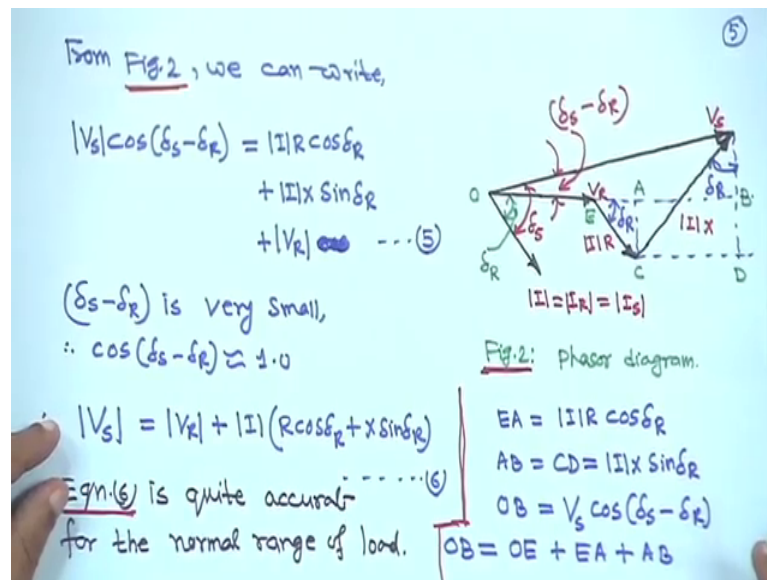 ⑤
From Fig.2, we can write,
|Vs|cos(δs-δR) = |I|R cosδR
+ |I|X sinδR
+|VR| ---⑤
(δs-δR) is very small,
∴ cos(δs-δR) ≈ 1.0
|Vs| = |VR| + |I|(RcosδR+XsinδR)
-----⑥
Eqn.(6) is quite accurat
for the normal range of load.
(δs-δR)
Vs
O
VR
A
B
δR
δs
E
δR
|I|R
|I|X
δR
C
D
|I|=|IR|=|Is|
Fig.2: Phasor diagram.
EA = |I|R cosδR
AB = CD = |I|X sinδR
OB = Vs cos(δs-δR)
OB = OE + EA + AB